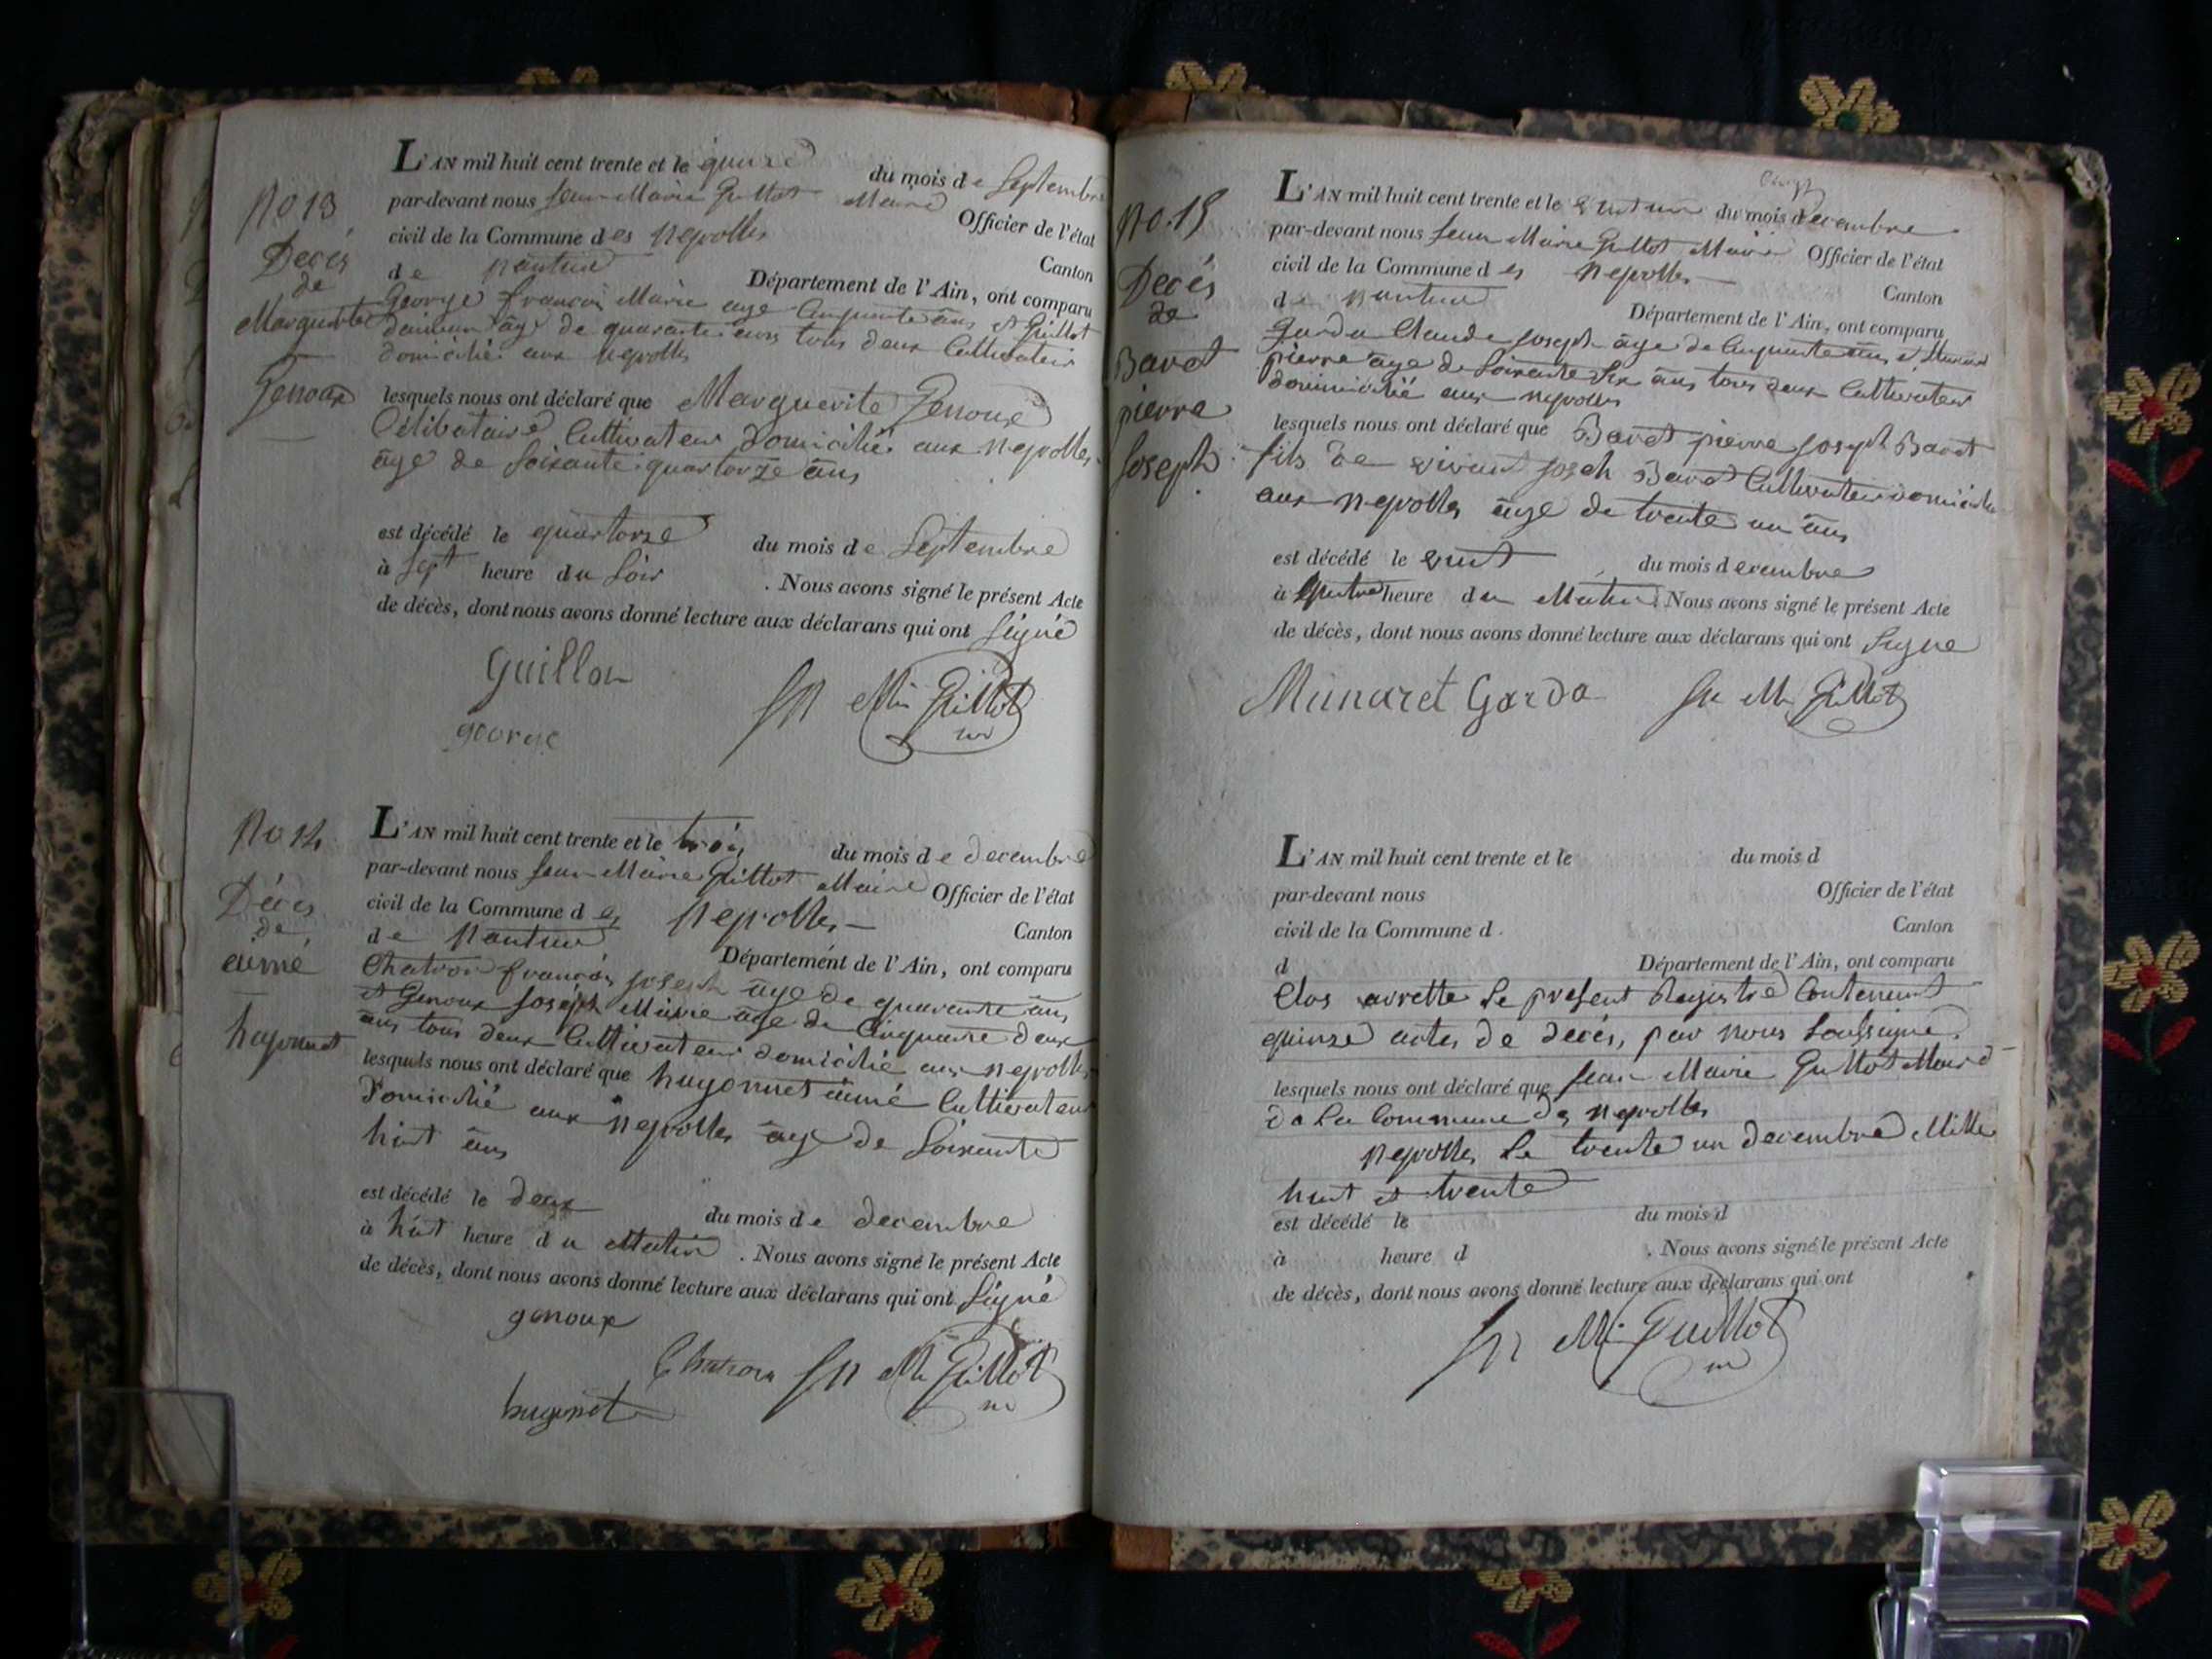 No 13
Decés
de
Marguerite
Genoux
L'AN mil huit cent trente et le quinze du mois de Septembre
par-devant nous Jean Marie Guillot Maire Officier de l'état
civil de la Commune des Neyrolles Canton
de Nantua Département de l'Ain, ont comparu
George françois Marie age Cinquante ans et Guillot
âge de quarante ans tous deux Cultivateur
domicilié aux Neyrolles
lesquels nous ont déclaré que Marguerite Genoux
Célibataire Cultivateur domicilié aux Neyrolles
âge de soixante quartorze ans
est décédé le quartorze du mois de Septembre
à sept heure du soir . Nous avons signé le présent Acte
de décès, dont nous avons donné lecture aux déclarans qui ont signé
Guillon
george
Jn Mie Guillot
No 14
Décés
de
aimé
hugonnet
L'AN mil huit cent trente et le trois du mois de decembre
par-devant nous Jean Marie Guillot Maire Officier de l'état
civil de la Commune des Neyrolles Canton
de Nantua Département de l'Ain, ont comparu
Chatron françois joseph âge de quarante ans
et Genoux joseph Marie age de Cinquante deux
ans tous deux Cultivateur domicilié aux Neyrolles
lesquels nous ont déclaré que hugonnet aimé Cultivateur
Domicilié aux Neyrolles âge de soixante
huit ans
est décédé le deux du mois de decembre
à huit heure du Matin . Nous avons signé le présent Acte
de décès, dont nous avons donné lecture aux déclarans qui ont signé
genoux
Chatron Jn Mie Guillot
hugonet
No. 15
Decés
de
Bavet
pierre
Joseph
L'AN mil huit cent trente et le vint un du mois decembre
par-devant nous Jean Marie Guillot Maire Officier de l'état
civil de la Commune des Neyrolles Canton
de Nantua Département de l'Ain, ont comparu
Garda Claude joseph âge de Cinquante ans et Munaret
pierre âge de soixante six ans tous deux Cultivateur
domicilié aux Neyrolles
lesquels nous ont déclaré que Bavet pierre joseph Bavet
fils de vivant joseh Bavet Cultivateur domicilie
aux Neyrolles âge de trente un ans
est décédé le vint du mois decembre
à quatre heure du Matin . Nous avons signé le présent Acte
de décès, dont nous avons donné lecture aux déclarans qui ont signe
Munaret Garda Jn M Guillot
L'AN mil huit cent trente et le du mois d
par-devant nous Officier de l'état
civil de la Commune d Canton
d Département de l'Ain, ont comparu
Clos arrette le present Registre Contenant
quinze actes de decés, par nous soussigné
lesquels nous ont déclaré que Jean Marie Guillot Maire
de la Commune des Neyrolles
Neyrolles le trente un decembre Mille
huit et trente
est décédé le du mois d
à heure d . Nous avons signé le présent Acte
de décès, dont nous avons donné lecture aux déclarans qui ont
Jn Mie Guillot